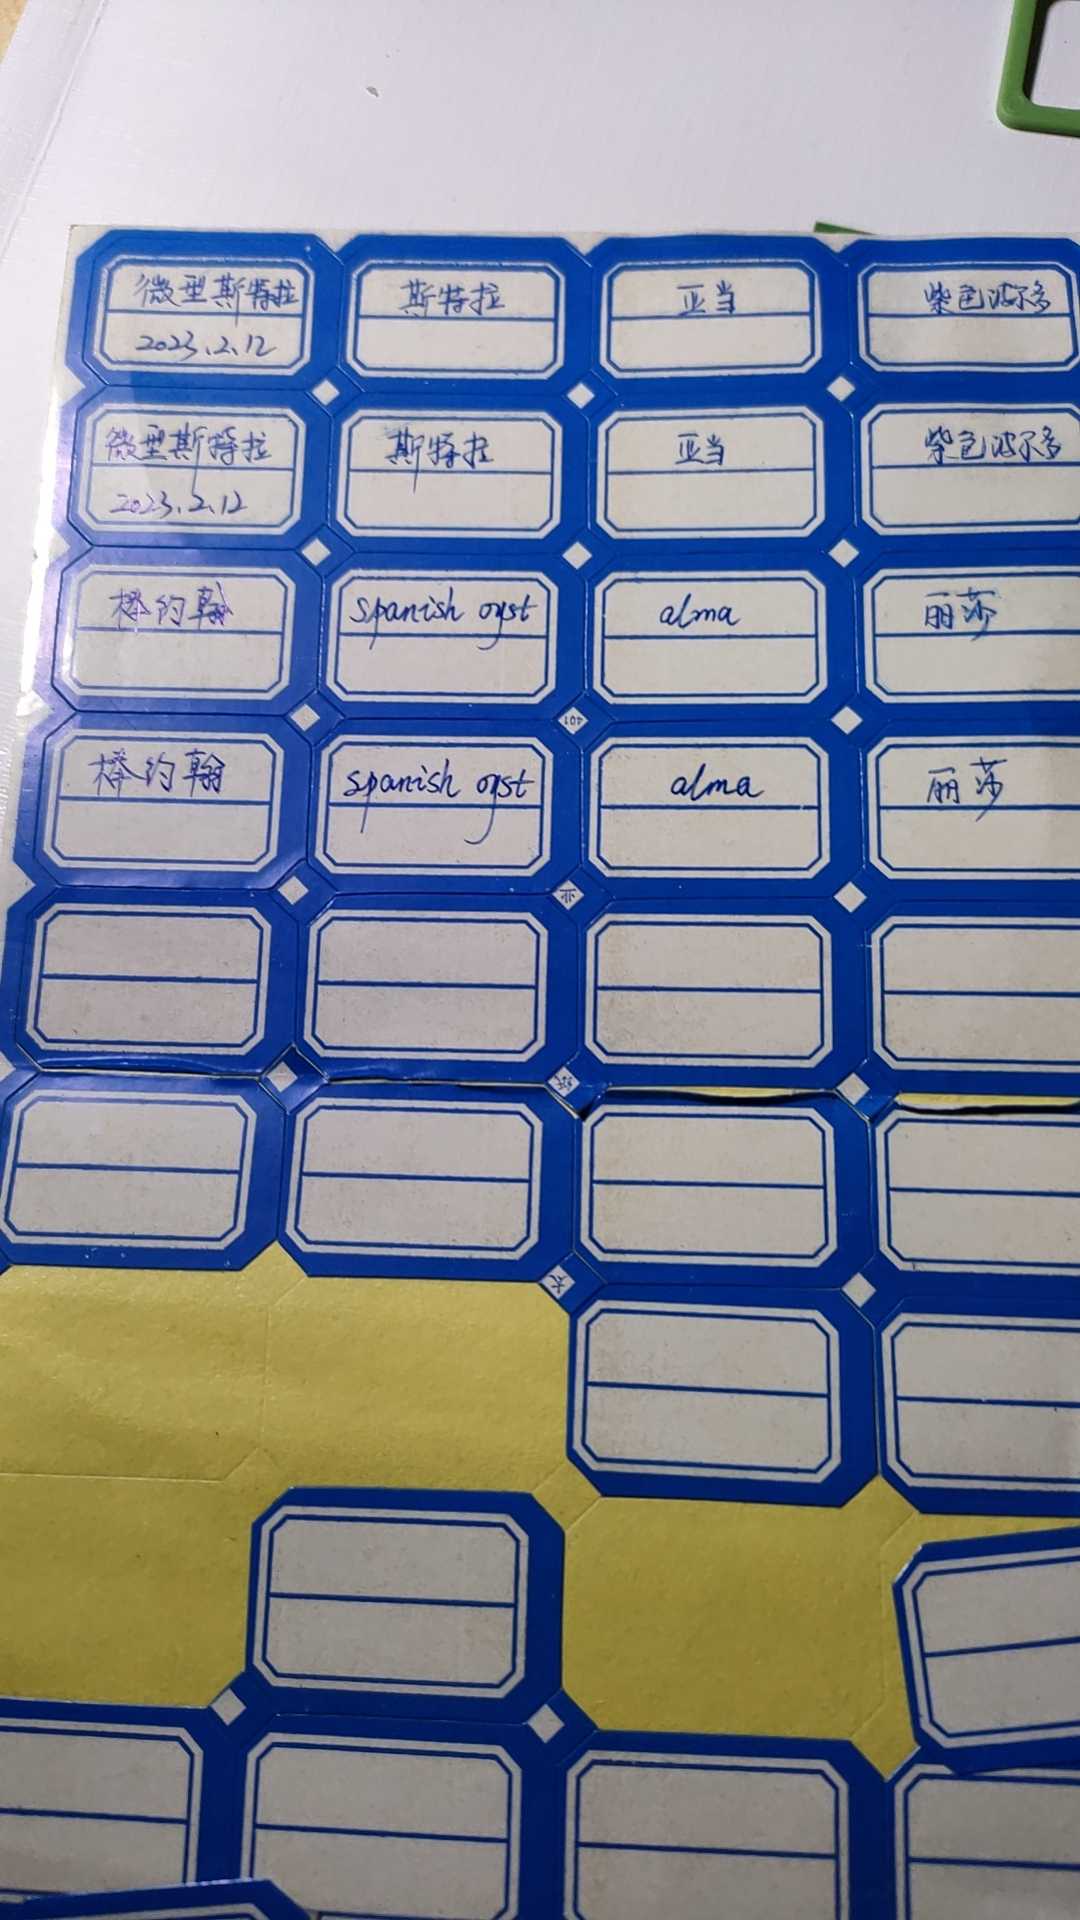 微型斯特拉
2023.2.12
斯特拉
亚当
紫色波尔多
微型斯特拉
2023.2.12
斯特拉
亚当
紫色波尔多
棒约翰
spanish oyst
alma
丽莎
401
棒约翰
spanish oyst
alma
丽莎